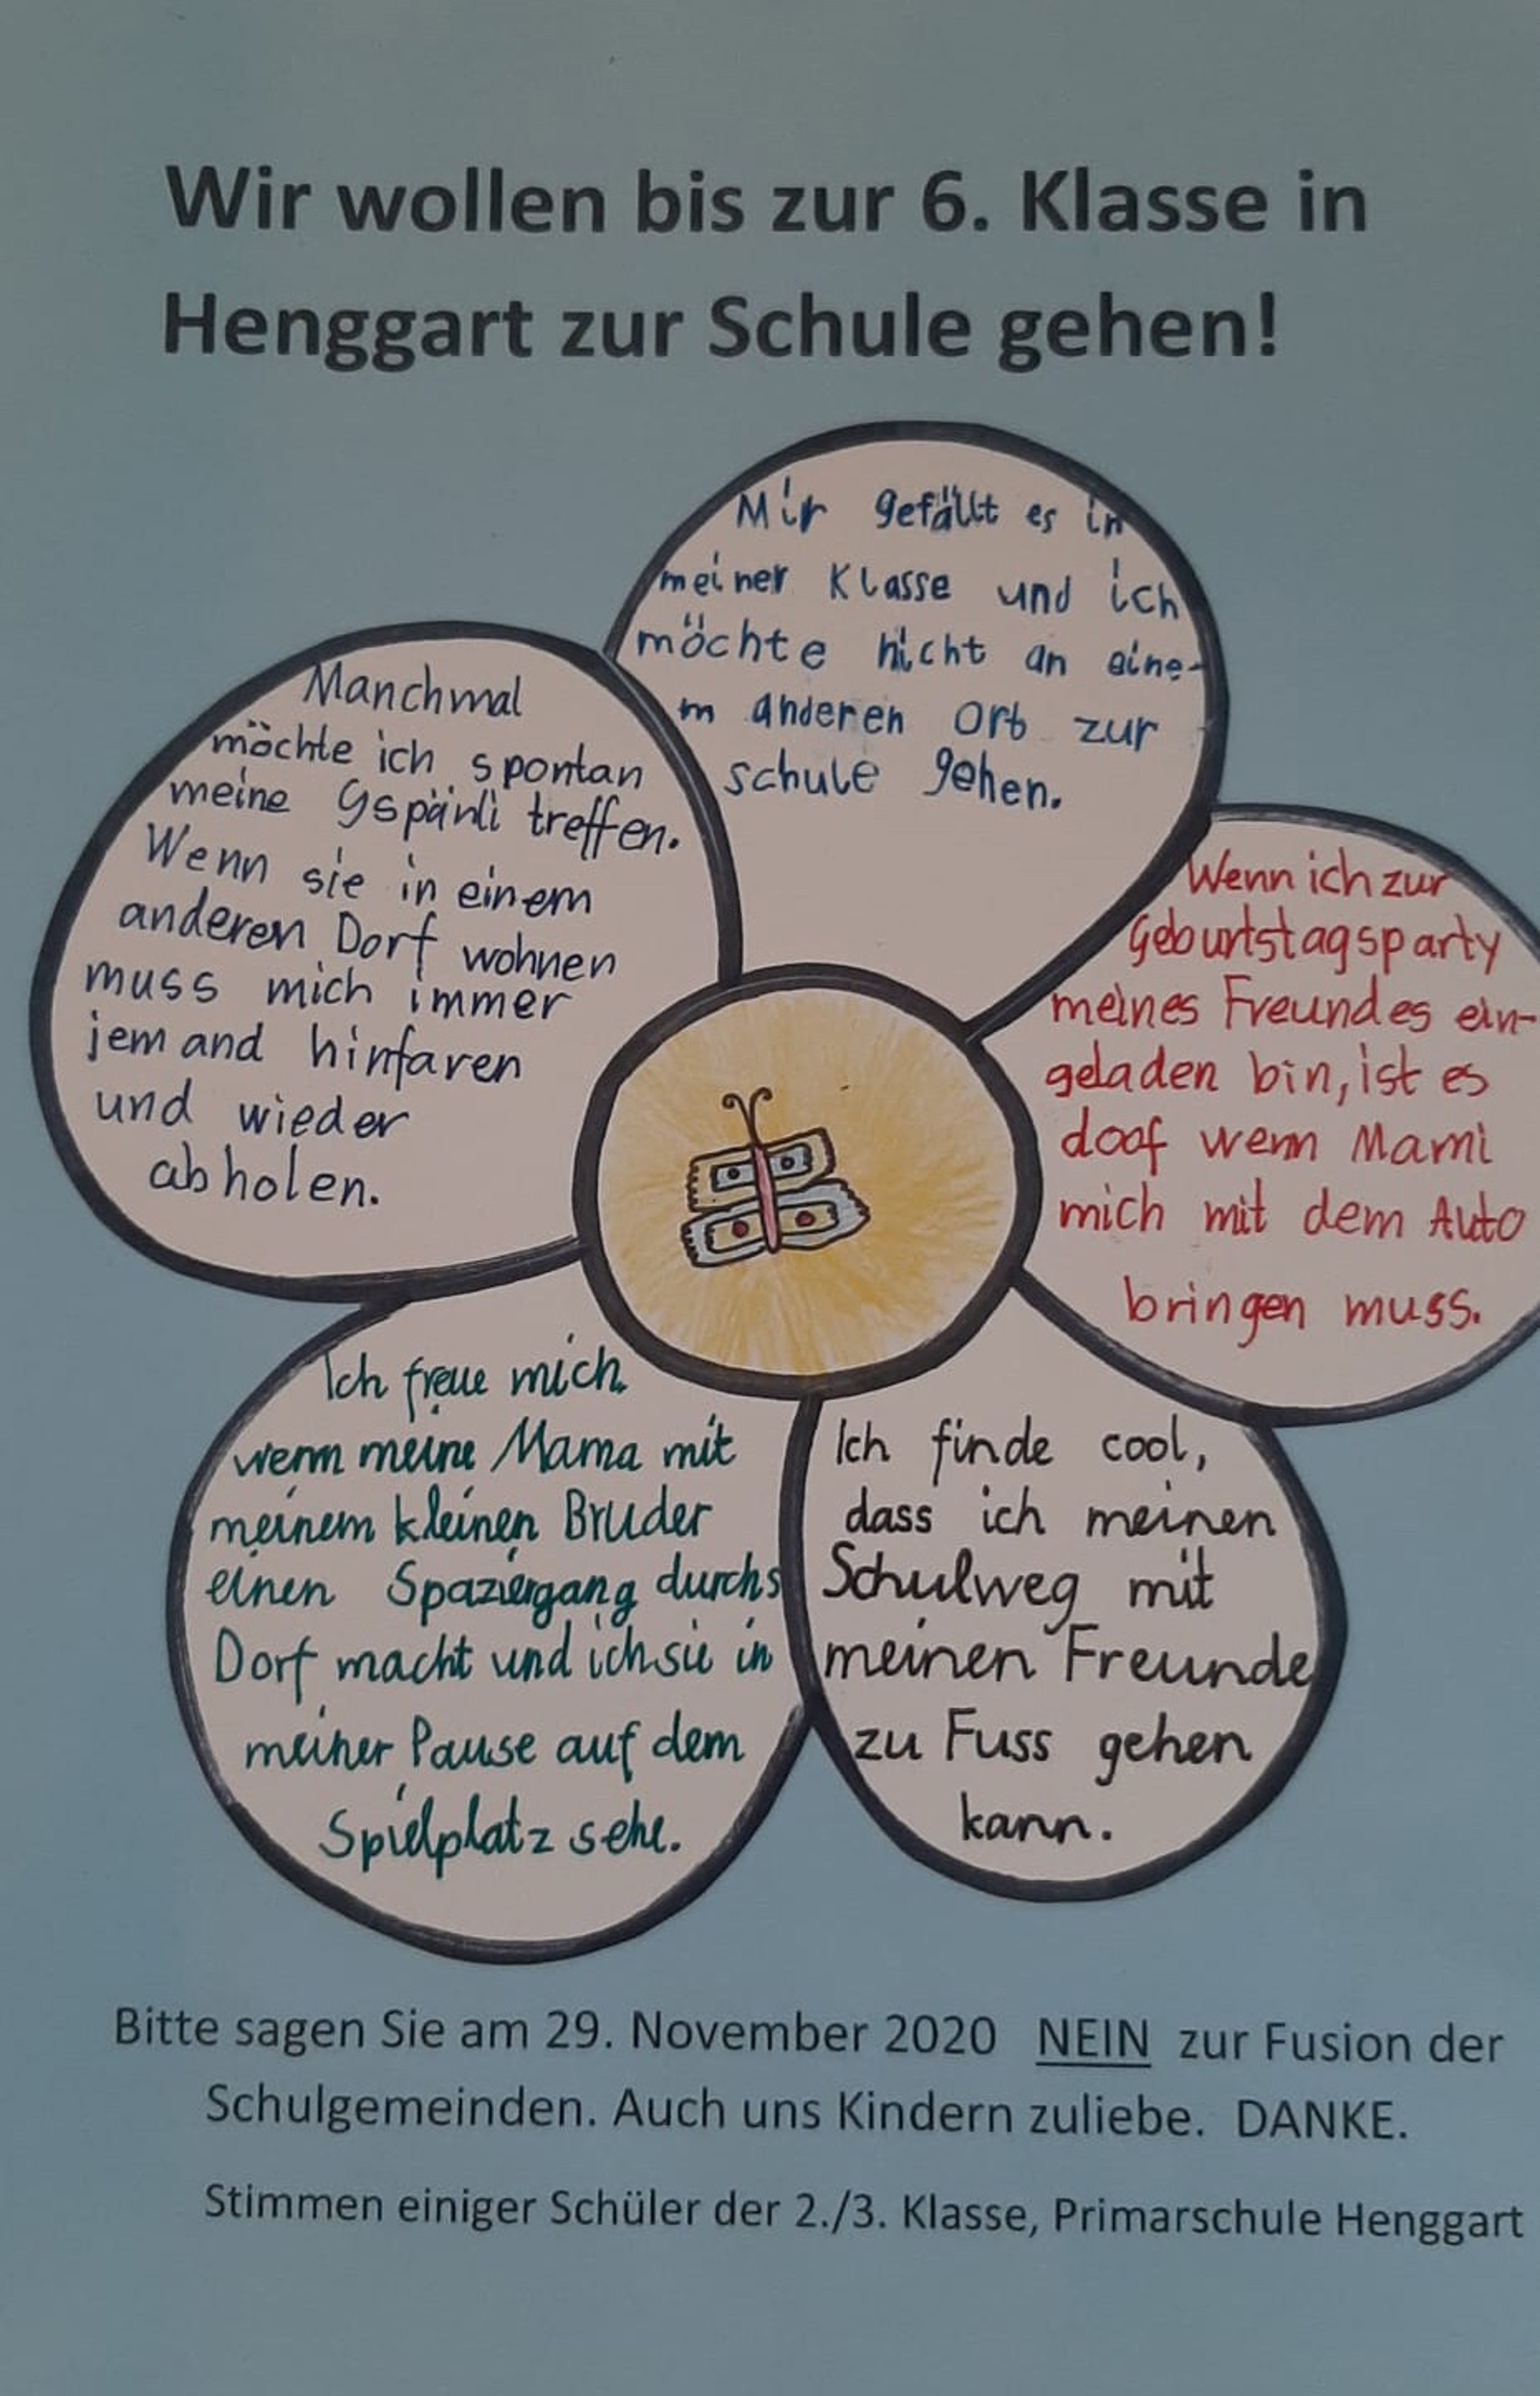 Wir wollen bis zur 6. Klasse in
Henggart zur Schule gehen!
Mir gefällt es in
meiner Klasse und ich
möchte nicht an eine-
m anderen Ort zur
schule gehen.
Manchmal
möchte ich spontan
meine Gspänli treffen.
Wenn sie in einem
anderen Dorf wohnen
muss mich immer
jemand hinfaren
und wieder
abholen.
Wenn ich zur
Geburtstagsparty
meines Freundes ein-
geladen bin, ist es
doof wenn Mami
mich mit dem Auto
bringen muss.
Ich freue mich,
wenn meine Mama mit
meinem kleinen Bruder
einen Spaziergang durchs
Dorf macht und ich sie in
meiner Pause auf dem
Spielplatz sehe.
Ich finde cool,
dass ich meinen
Schulweg mit
meinen Freunde
zu Fuss gehen
kann.
Bitte sagen Sie am 29. November 2020 NEIN zur Fusion der
Schulgemeinden. Auch uns Kindern zuliebe. DANKE.
Stimmen einiger Schüler der 2./3. Klasse, Primarschule Henggart